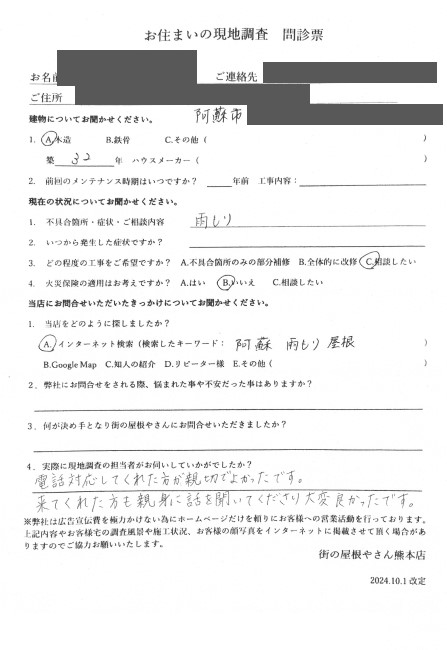 お住まいの現地調査　問診票
お名前
ご連絡先
ご住所
阿蘇市
建物についてお聞かせください。
1. A.木造　B.鉄骨　C.その他（　）
築 32 年　ハウスメーカー（　）
2. 前回のメンテナンス時期はいつですか？　＿＿年前　工事内容：
現在の状況についてお聞かせください。
1. 不具合箇所・症状・ご相談内容　雨もり
2. いつから発生した症状ですか？
3. どの程度の工事をご希望ですか？ A.不具合箇所のみの部分補修 B.全体的に改修 C.相談したい
4. 火災保険の適用はお考えですか？ A.はい　B.いいえ　C.相談したい
当店にお問合せいただいたきっかけについてお聞かせください。
1. 当店をどのように探しましたか？
A.インターネット検索（検索したキーワード：阿蘇　雨もり　屋根　）
B.Google Map　C.知人の紹介　D.リピーター様　E.その他（　）
2. 弊社にお問合せをされる際、悩まれた事や不安だった事はありますか？
3. 何が決め手となり街の屋根やさんにお問合せいただきましたか？
4. 実際に現地調査の担当者がお伺いしていかがでしたか？
電話対応してくれた方が親切でよかったです。
来てくれた方も親身に話を聞いてくださり大変良かったです。
※弊社は広告宣伝費を極力かけない為にホームページだけを頼りにお客様への営業活動を行っております。
上記内容やお客様宅の調査風景や施工状況、お客様の顔写真をインターネットに掲載させて頂く場合があ
りますのでご協力お願いいたします。
街の屋根やさん熊本店
2024.10.1 改定